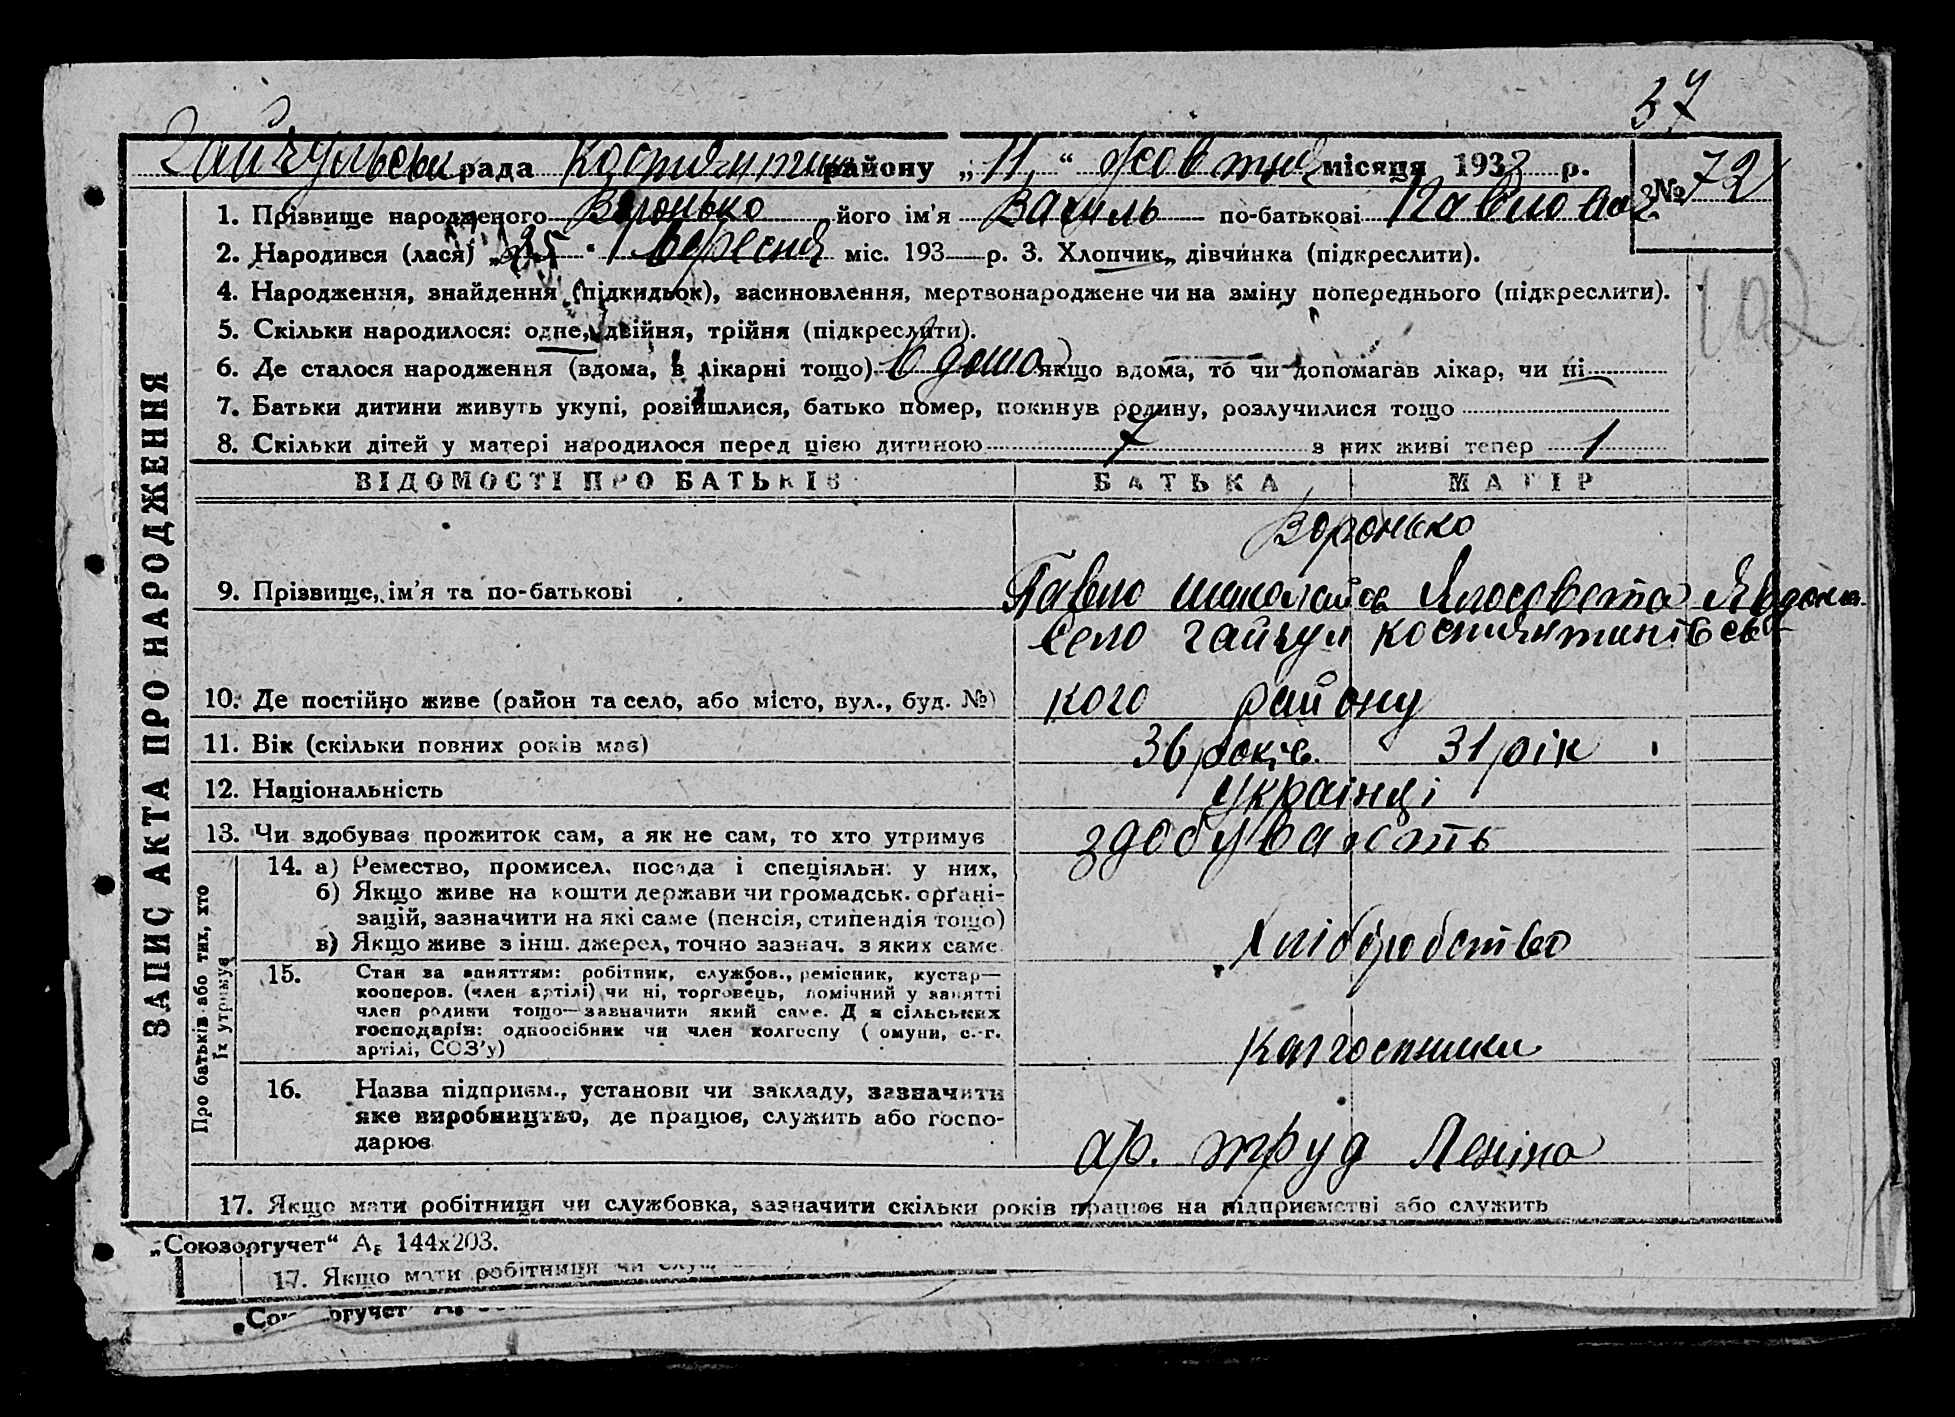 37
Гайчульськ рада Костянтин району „11“ Жовтня місяця 1933 р. № 72
1. Прізвище народженого Воронько його ім'я Василь по-батькові Павлов
2. Народився (лася) „25“ Вересня міс. 193 р. 3. Хлопчик, дівчинка (підкреслити).
4. Народження, знайдення (підкидьок), засиновлення, мертвонароджене чи на зміну попереднього (підкреслити).
102
5. Скільки народилося: одне, двійня, трійня (підкреслити).
6. Де сталося народження (вдома, в лікарні тощо) в дома якщо вдома, то чи допомагав лікар, чи ні
7. Батьки дитини живуть укупі, розійшлися, батько помер, покинув родину, розлучилися тощо
8. Скільки дітей у матері народилося перед цією дитиною 7 з них живі тепер 1
ЗАПИС АКТА ПРО НАРОДЖЕННЯ
ВІДОМОСТІ ПРО БАТЬКІВ БАТЬКА МАТІР
Воронько
9. Прізвище, ім'я та по-батькові Павло Миколайов
село Гайчул Костянтинівсь-
10. Де постійно живе (район та село, або місто, вул., буд. №) кого району
11. Вік (скільки повних років має) 36 років. 31 рік
12. Національність Українці
13. Чи здобуває прожиток сам, а як не сам, то хто утримує здобувають
Про батьків або тих, хто їх утримує
14. а) Ремество, промисел, посада і спеціяльн. у них.
б) Якщо живе на кошти держави чи громадськ. органі-
зацій, зазначити на які саме (пенсія, стипендія тощо)
в) Якщо живе з інш. джерел, точно зазнач. з яких саме. Хліборобство
15. Стан за заняттям: робітник, службов., ремісник, кустар—
кооперов. (член артілі) чи ні, торговець, помічний у занятті
член родини тощо—зазначити який саме. Для сільських
господарів: одноосібник чи член колгоспу (комуни, с.-г.
артілі, СОЗ'у) Колгоспники
16. Назва підприєм., установи чи закладу, зазначити
яке виробництво, де працює, служить або госпо-
дарює ар. труд Леніна
17. Якщо мати робітниця чи службовка, зазначити скільки років працює на підприємстві або служить
„Союзоргучет“ А₅ 144х203.
17. Якщо мати робітниця чи
„Союзоргучет“